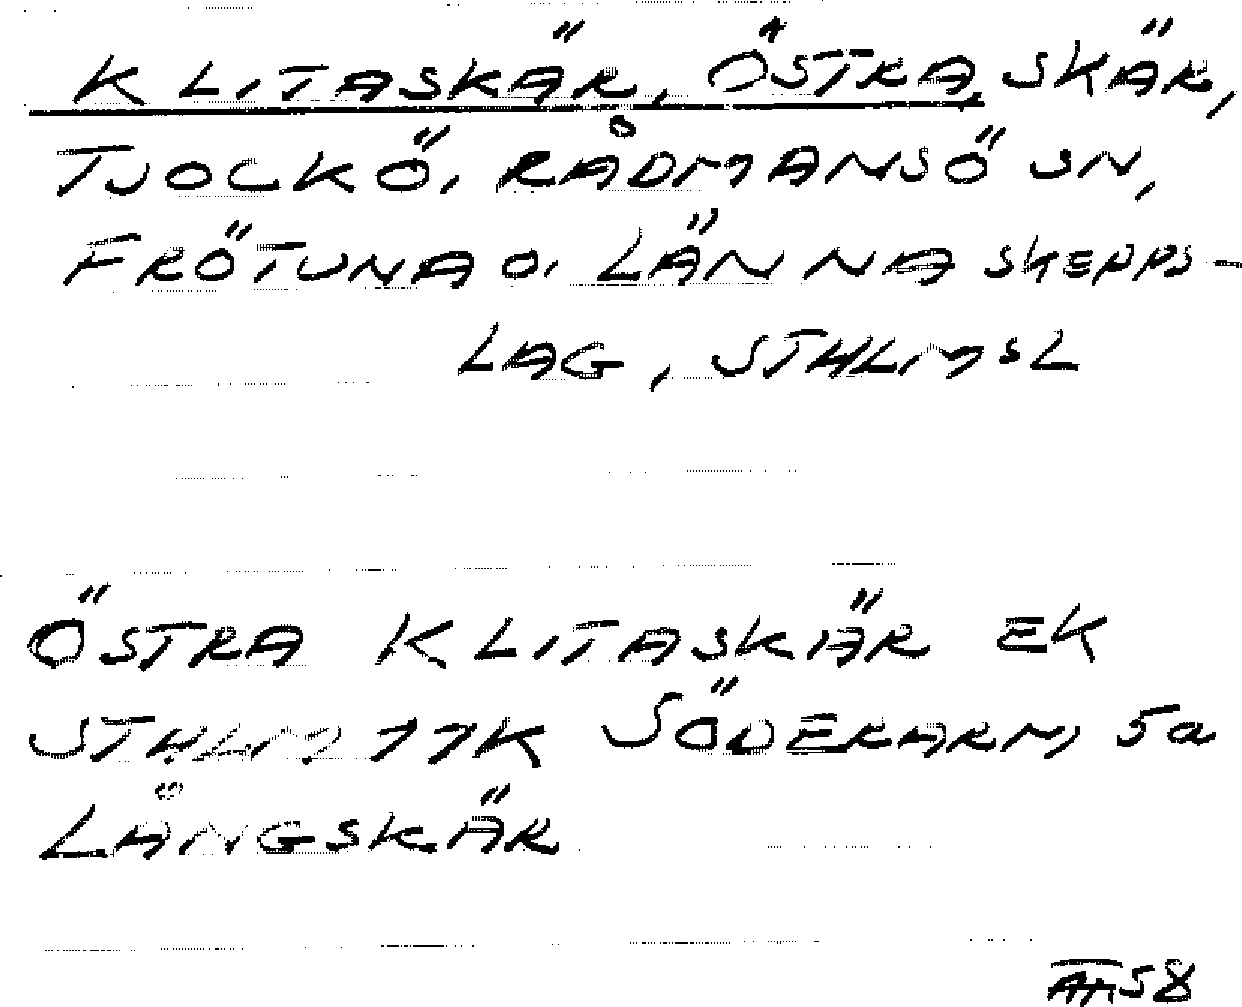 KLITASKÄR, ÖSTRA, SKÄR,
TJOCKÖ, RÅDMANSÖ SN,
FRÖTUNA O. LÄNNA SKEPPS-
LAG, STHLMSL
ÖSTRA KLITASKÄR EK
STHLM 11K SÖDERARM, 5a
LÅNGSKÄR
58